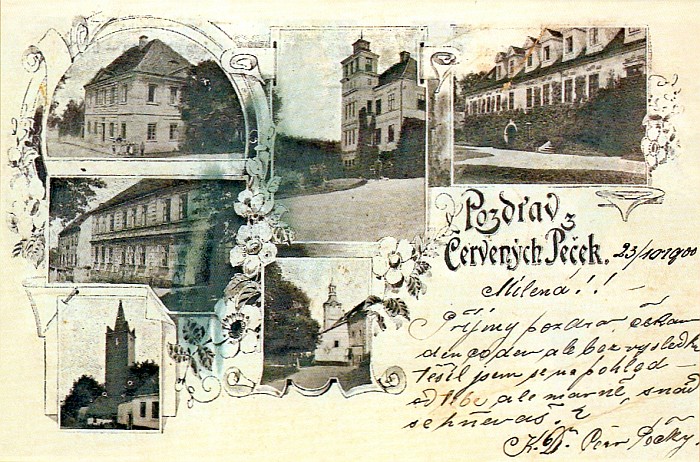 Pozdrav z
Červených Peček.
23/10 1900
Milená!! –
Přijmy pozdrav, čekam
den co den ale bez vysledk
těšil jsem se na pohled –
od tebe ale marně, snad
se hněvaš.
K. Dř.